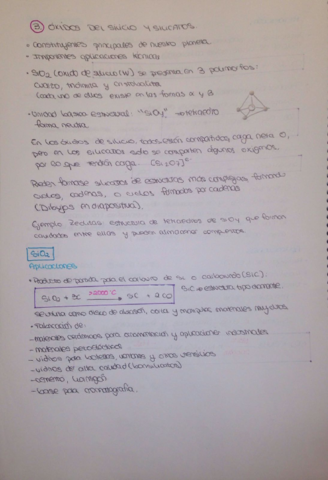 ③ ÓXIDOS DEL SILICIO Y SILICATOS.
• Constituyentes principales de nuestro planeta.
• Importantes aplicaciones técnicas
• SiO₂ (óxido de silicio (IV)) se presenta en 3 polimorfos:
cuarzo, tridimita y cristobalita
cada uno de ellos existe en las formas α y β
• Unidad básica estructural: "SiO₄" → tetraedro
forma neutra.
En los óxidos de silicio, todos están compartidos, carga neta 0,
pero en los silicatos sólo se comparten algunos oxígenos
por lo que tendrán carga
Pueden formarse silicatos de estructuras más complejas, formando
ciclos, cadenas, o ciclos formados por cadenas
(Dibujos en diapositiva).
Ejemplo: Zeolitas: estructura de tetraedros de SiO₄ que forman
cavidades entre ellos y pueden almacenar compuestos.
SiO₂
Aplicaciones
• Producto de partida para el carburo de Si o carborundo (SiC).
SiO₂ + 3C >2000°C SiC + 2CO
SiC → estructura tipo diamante.
Se utiliza como medio de abrasión, corta y materiales
• Fabricación de:
- materiales cerámicos para ornamentación y aplicaciones
- materiales piezoeléctricos
- vidrios para botellas, ventanas y otros utensilios
- vidrios de alta calidad (borosilicatos)
- cemento, hormigón
- base para cromatografía.